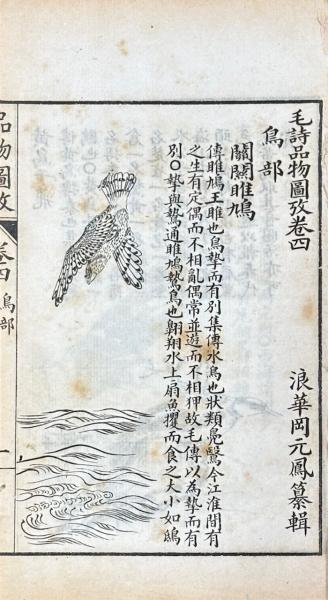 毛詩品物圖攷卷四
浪華岡元鳳纂輯
鳥部
關關雎鳩
傳雎鳩王雎也鳥摯而有別集傳水鳥也狀類鳧鷖今江淮間有
之生有定偶而不相亂偶常並遊而不相狎故毛傳以為摯而有
別○摯與鷙通雎鳩鷙鳥也翱翔水上扇魚攫而食之大小如鴟
品物圖攷
卷四 鳥部
一